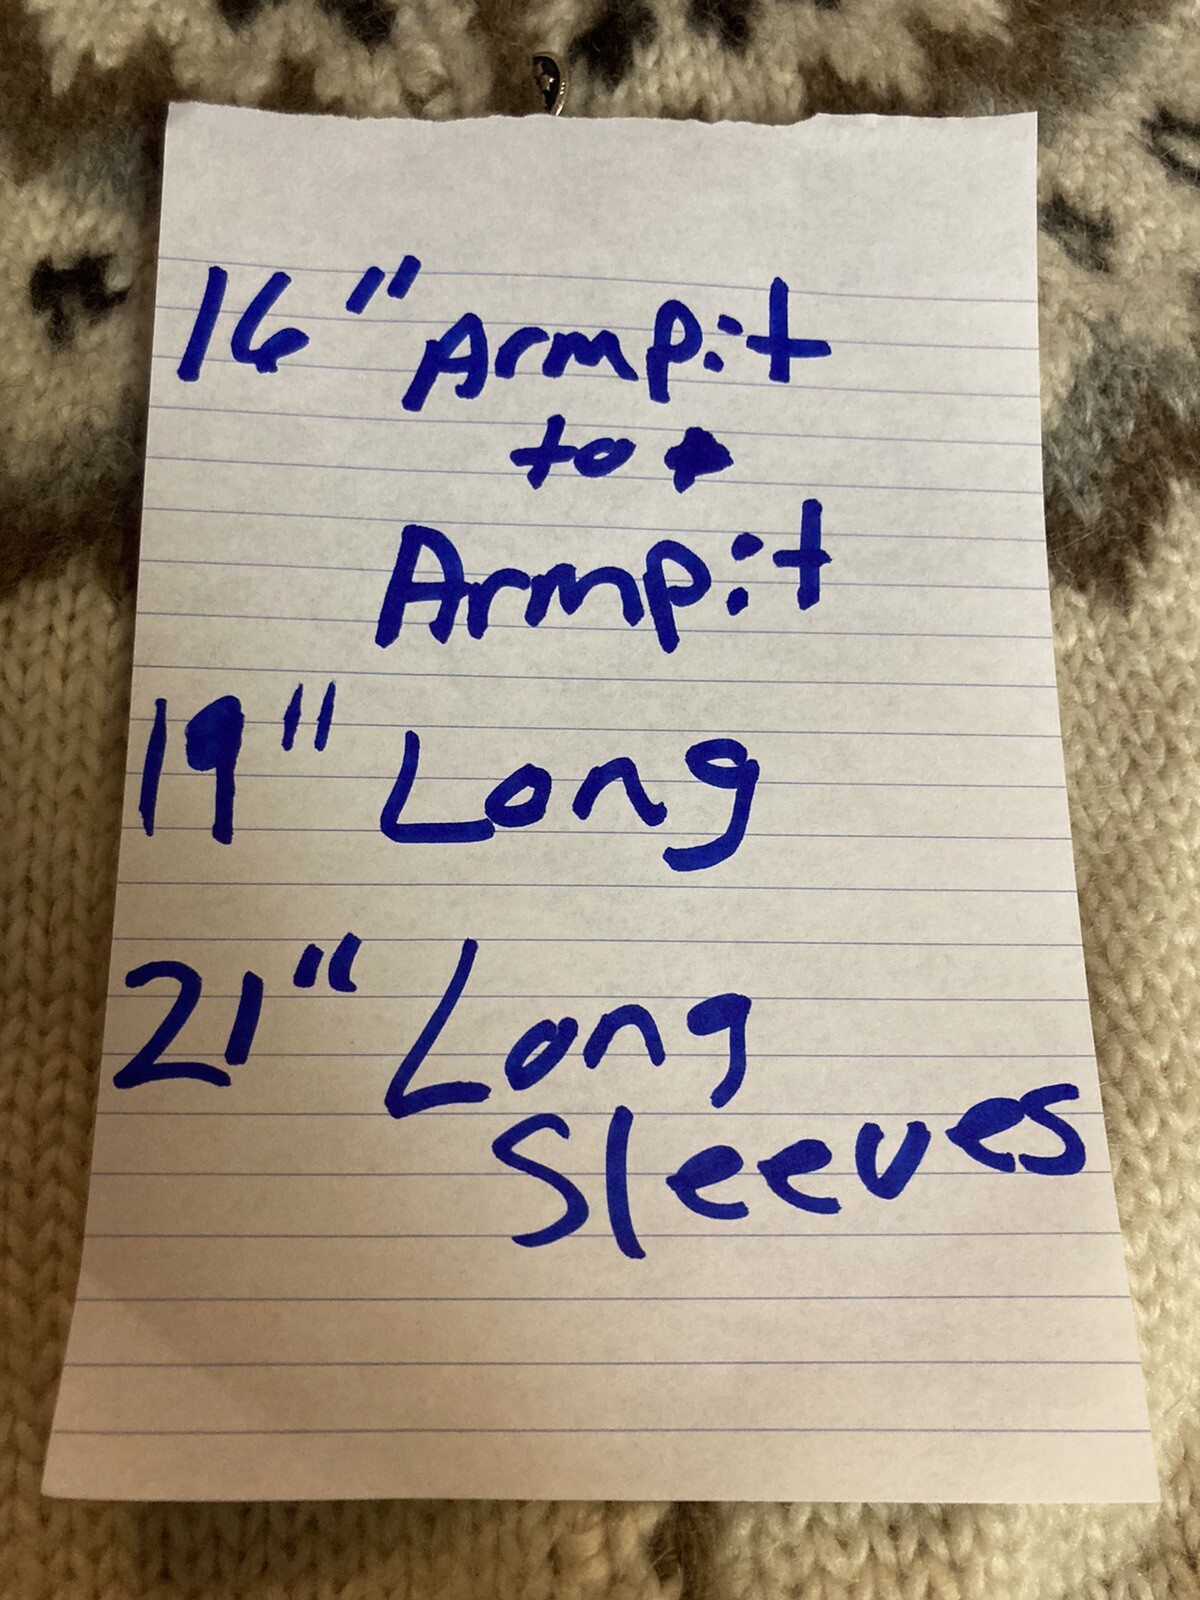 16" Armpit
to
Armpit
19" Long
21" Long
Sleeves